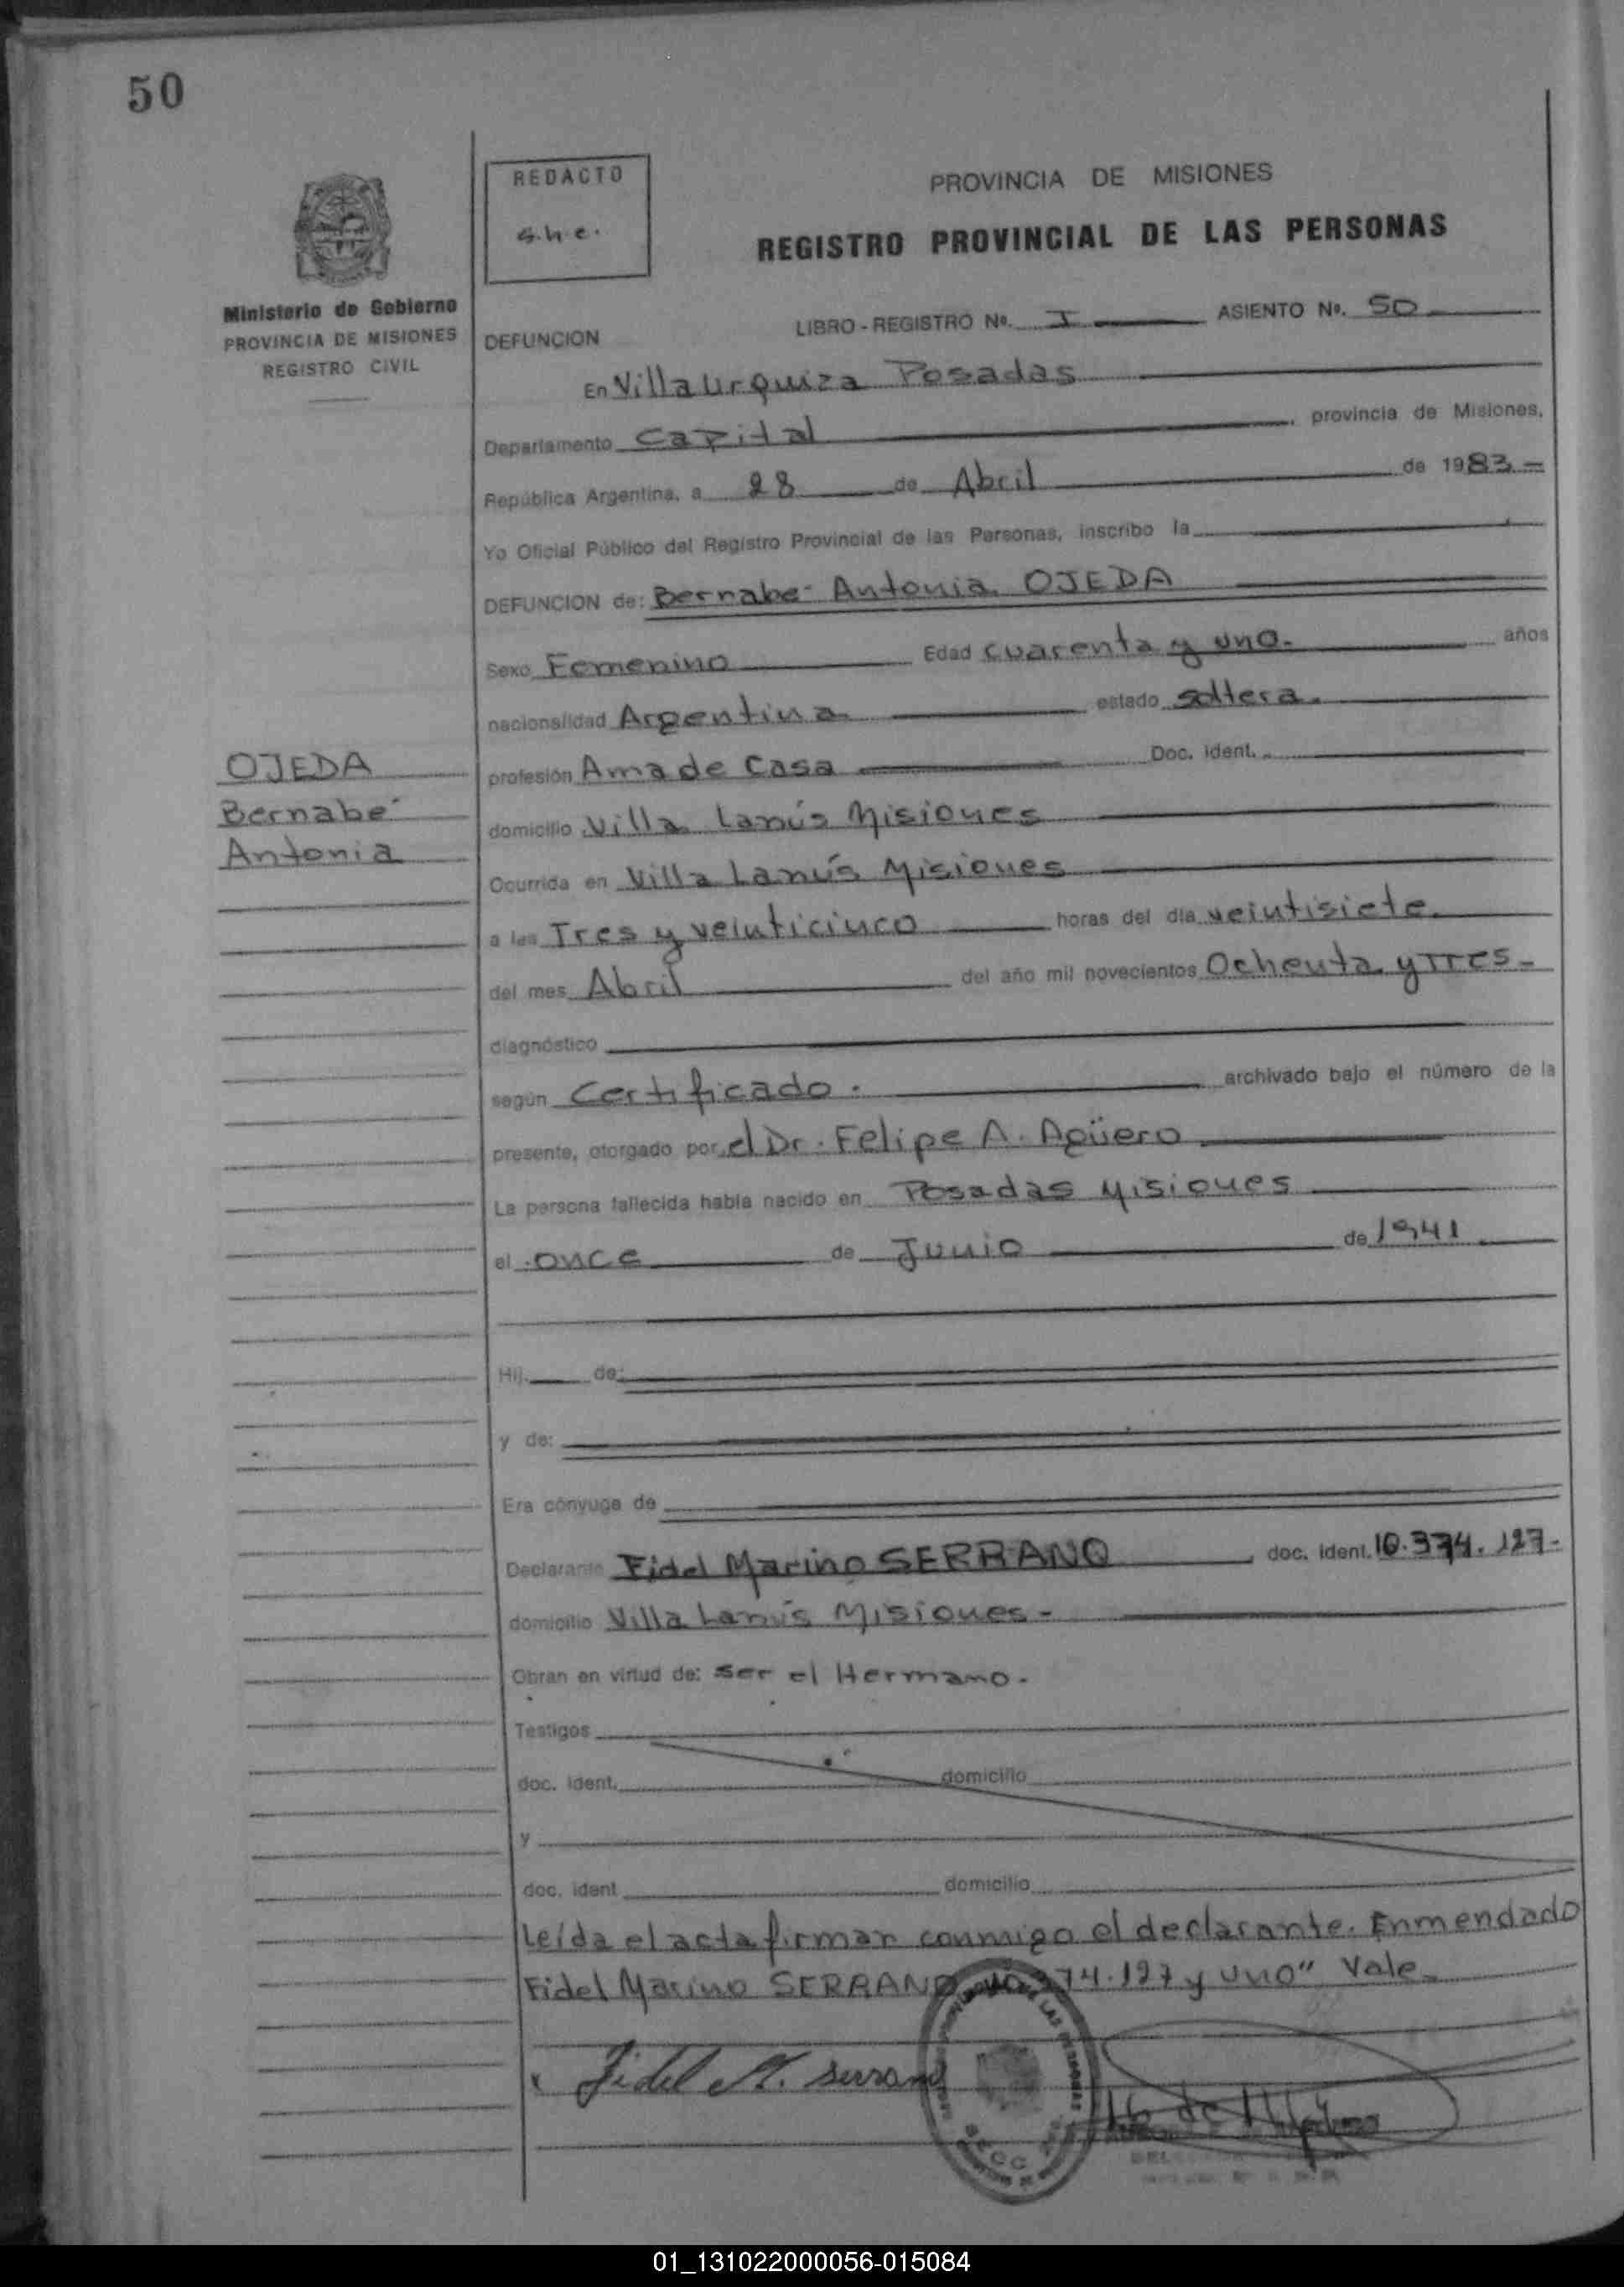 50
REDACTO
s.h.e.
PROVINCIA DE MISIONES
REGISTRO PROVINCIAL DE LAS PERSONAS
Ministerio de Gobierno
PROVINCIA DE MISIONES
REGISTRO CIVIL
DEFUNCION
LIBRO - REGISTRO Nº. I ASIENTO Nº. 50
En Villa Urquiza Posadas
Departamento Capital , provincia de Misiones,
República Argentina, a 28 de Abril de 1983 -
Yo Oficial Público del Registro Provincial de las Personas, inscribo la
DEFUNCION de: Bernabé Antonia OJEDA
Sexo Femenino Edad cuarenta y uno. años
nacionalidad Argentina estado soltera.
OJEDA
Bernabé
Antonia
profesión Ama de Casa Doc. ident.
domicilio Villa Lanús Misiones
Ocurrida en Villa Lanús Misiones
a las Tres y veinticinco horas del día veintisiete
del mes Abril del año mil novecientos Ochenta y Tres -
diagnóstico
según Certificado. archivado bajo el número de la
presente, otorgado por el Dr. Felipe A. Agüero
La persona fallecida había nacido en Posadas Misiones
el once de Junio de 1941
Hij de:
y de:
Era cónyuge de
Declarante Fidel Marino SERRANO , doc. ident. 10.374.127-
domicilio Villa Lanús Misiones -
Obran en virtud de: ser el Hermano.
Testigos
doc. ident. domicilio
y
doc. ident domicilio
Leída el acta firman conmigo el declarante. Enmendado
Fidel Marino SERRANO 74.127 y uno" Vale
Fidel M. Serrano
SECC
01_131022000056-015084